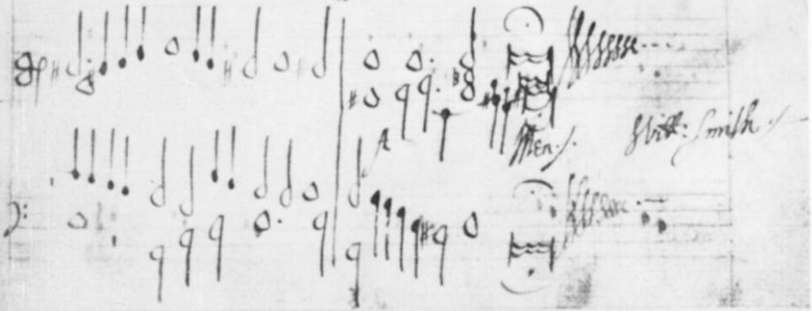 A Men ./.
Will: Smith ./.